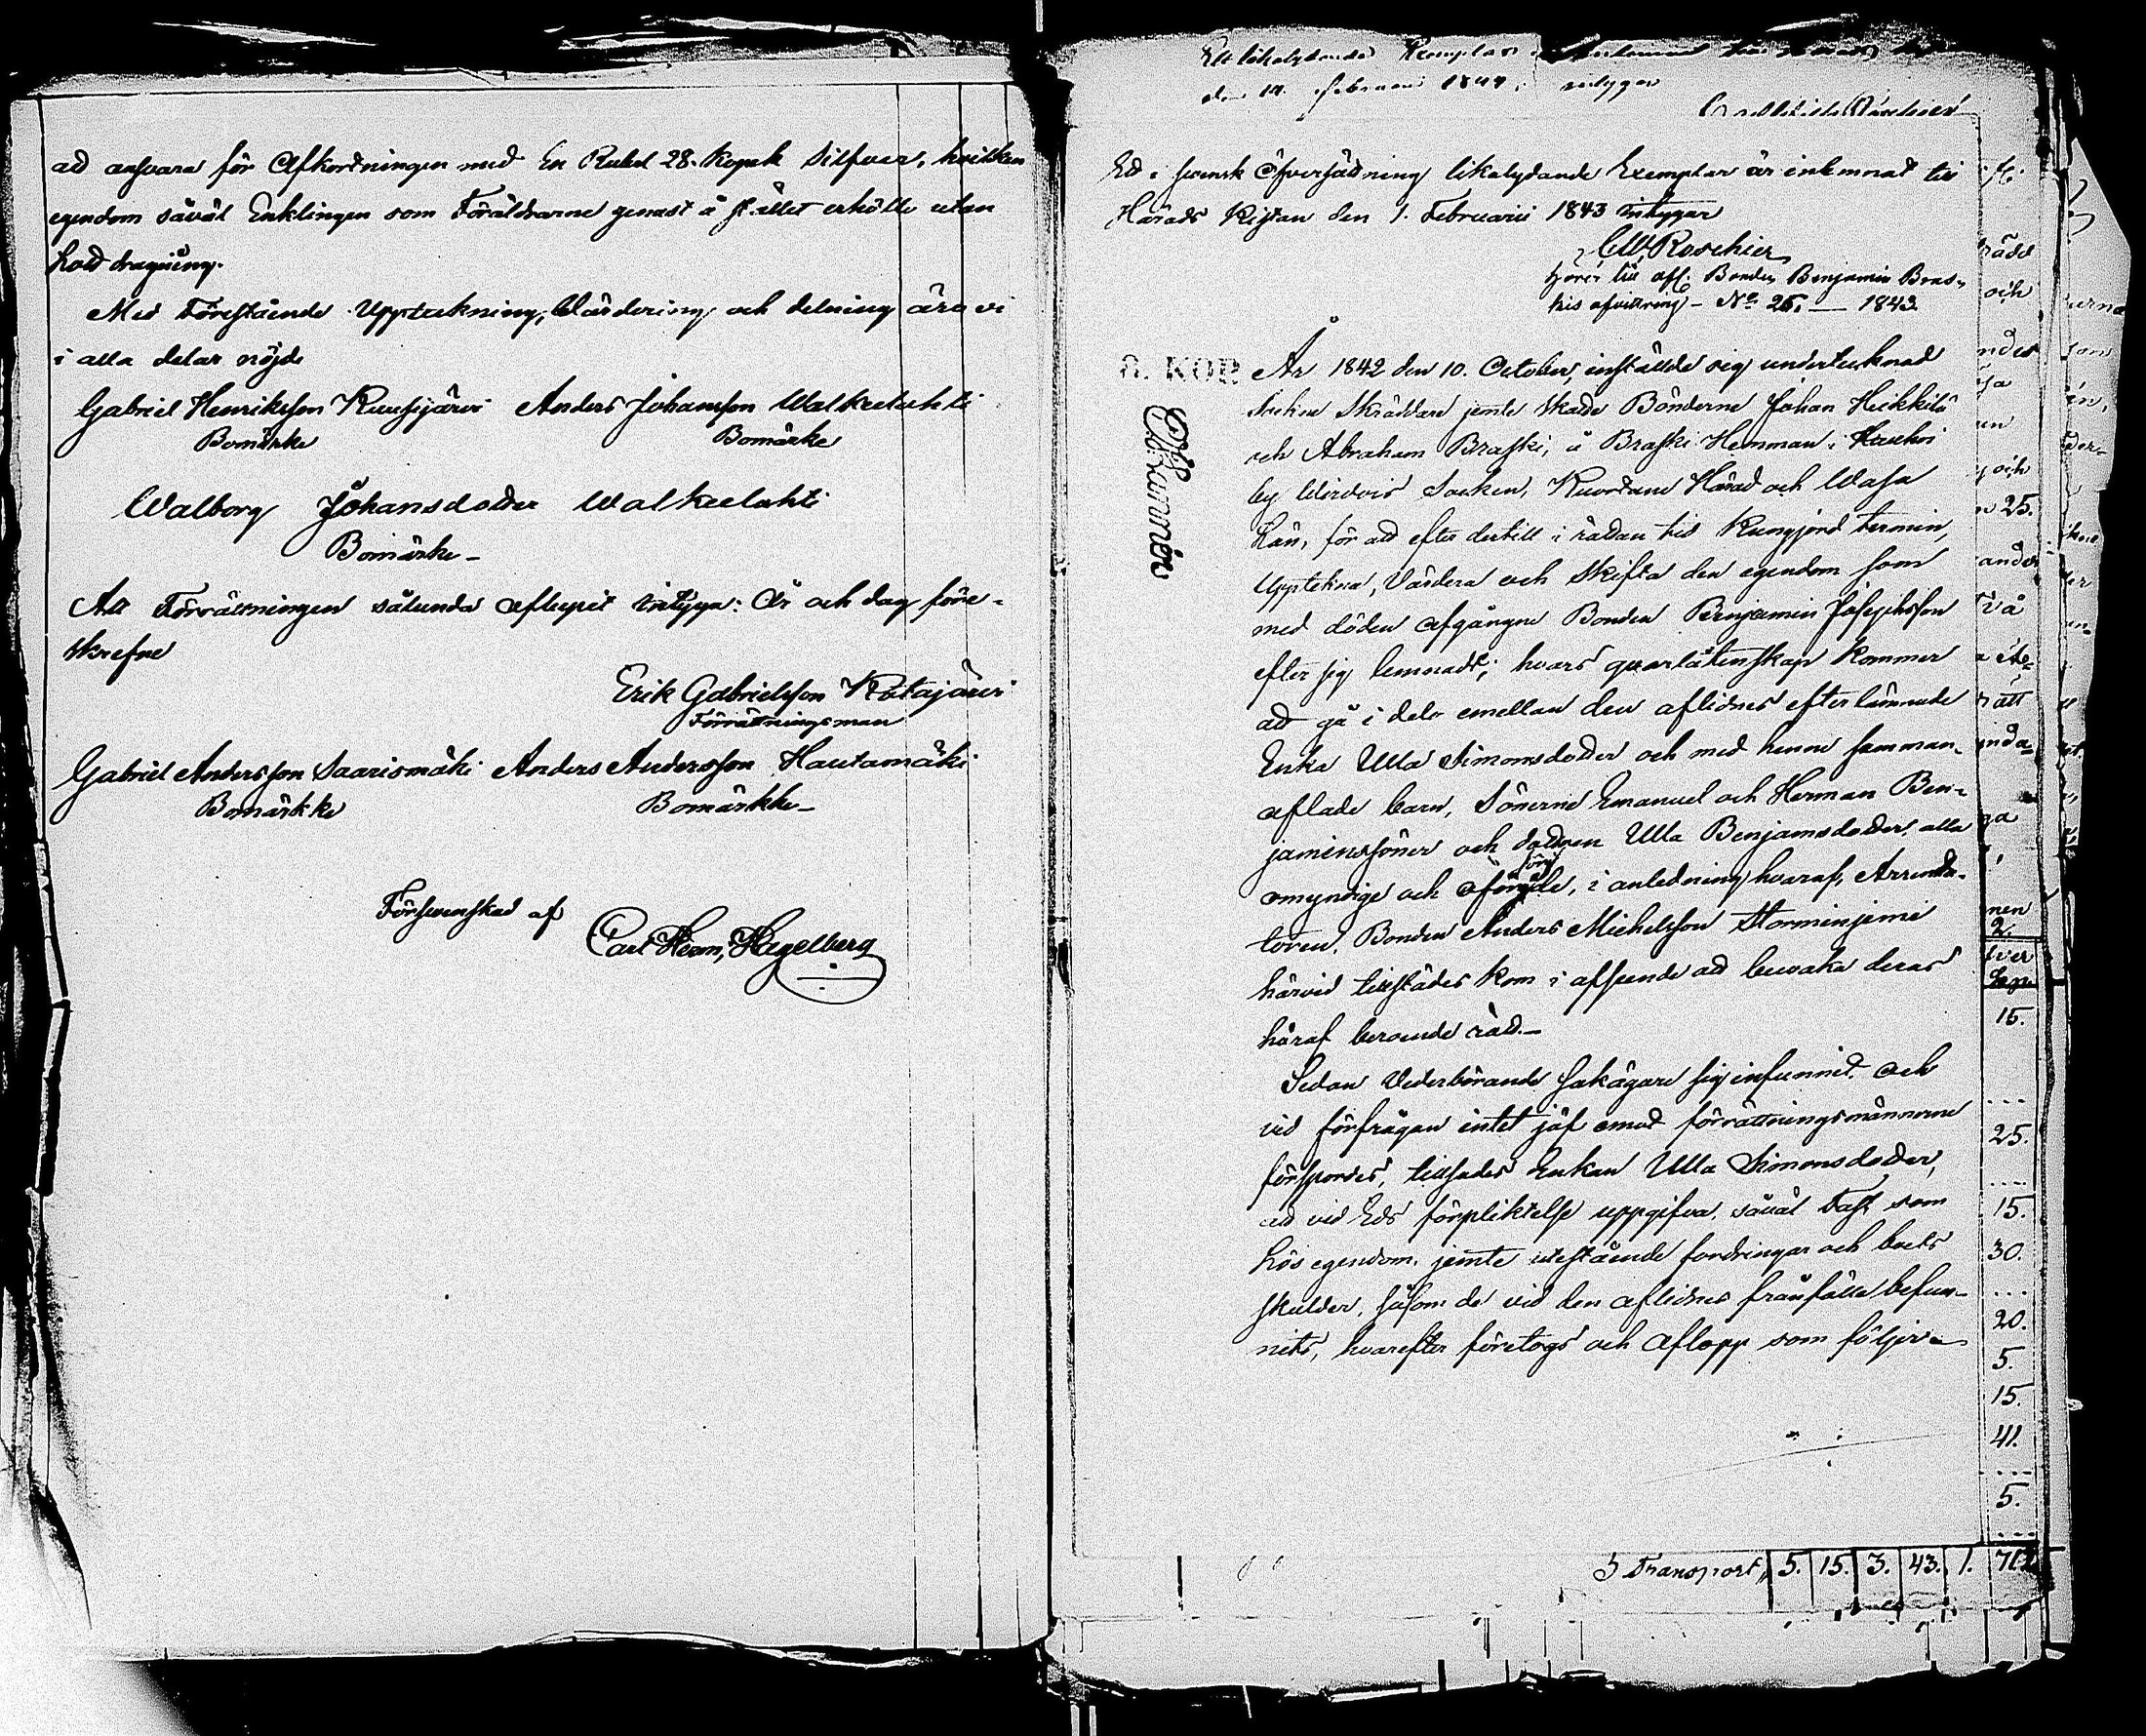 ad ansvara för Afkortningen med En Rubel 28. Kopek Silfver, hvilken
egendom såväl Enklingen som Föräldrarne genast å stället erhölle utan
lott dragning.
Med Förestående Upptekning, Värdering och delning äro vi
i alla delar nöjde
Gabriel Henriksson Kuusijärvi Anders Johansson Walkeelahti
Bomärke Bomärke
Walborg Johansdotter Walkeelahti
Bomärke
Att Förrättningen sålunda aflupit intyga: År och dag före-
skrefne
Erik Gabrielsson Ristajärvi
Förrättningsman
Gabriel Andersson Saarismäki Anders Andersson Hautamäki
Bomärkke Bomärkke
Försvenskad af
Carl Herm. Hagelberg
Ett likalydande Exemplar
den 14. februari 1844, intygar
Ett i svensk öfversättning likalydande Exemplar är inlemnat till
Härads Kistan den 1. Februarii 1843 intygar
CW Roschier
hörer till afl. Bonden Benjamin Bras-
kis afvittring - No 25. — 1843
8. KOP
År 1842 den 10. October, inställde sig undertecknad
Sockne Skräddare jemte skatte Bönderne Johan Heikkilä
och Abraham Braski, å Braski Hemman i
by Wirdois Socken, Kuortane Härad och Wasa
Län, för att efter dertill i rättan tid Kungjord termin,
Upptekna, Värdera och Skifta den egendom som
med döden afgångne Bonden Benjamin Josephsson
efter sig lemnadt; hvars qvarlåtenskap kommer
att gå i dele emellan den aflidnes efterlämnade
Enka Ulla Simonsdotter och med henne samman-
aflade barn, Sönerne Emanuel och Herman Ben-
jaminssöner och dottren Ulla Benjamsdotter, alla
omyndige och oförsörgde, i anledning hvaraf, Arrenda-
toren, Bonden Anders Michelsson Storminjemi
härvid tillstädes kom i afseende att bevaka deras
häraf beroende rätt.
Sedan Vederbörande sakägare sig infunnit och
vid förfrågan intet jäf emot förrättningsmännerne
försportes, tillsades Enkan Ulla Simonsdotter,
att vid Eds förpliktelse uppgifva, såväl Fast som
lös egendom, jemte utestående fordringar och boets
skulder, såsom de vid den aflidnes frånfälle befun-
nits, hvarefter företogs och aflopp som följer
Transport, 5. 15. 3. 43. 1.
och
och
25.
2.
15.
25.
15.
30.
20.
5.
15.
41.
5.